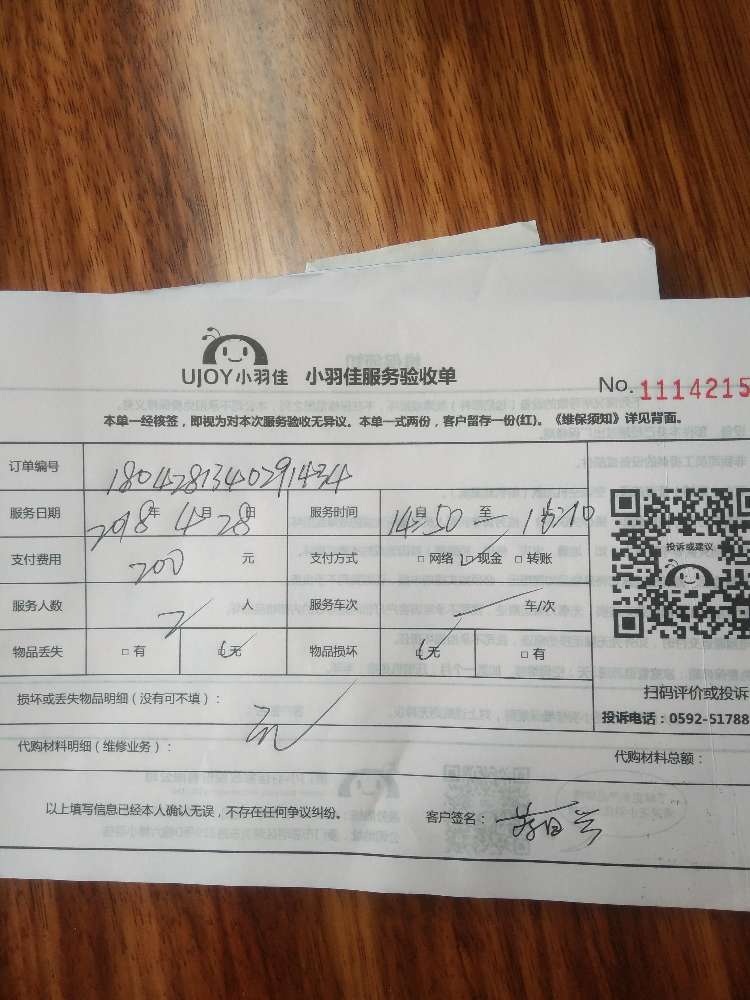 UJOY小羽佳 小羽佳服务验收单
No. 1114215
本单一经核签，即视为对本次服务验收无异议。本单一式两份，客户留存一份(红)。《维保须知》详见背面。
订单编号 18042813402914434
服务日期 2018年4月28日 服务时间 14自50至
支付费用 200 元 支付方式 □网络 现金 □转账
服务人数 2 人 服务车次 车/次
物品丢失 □有 无 物品损坏 无 □有
投诉或建议
扫码评价或投诉
投诉电话：0592-51788
损坏或丢失物品明细（没有可不填）：
无
代购材料明细（维修业务）：
代购材料总额：
以上填写信息已经本人确认无误，不存在任何争议纠纷。 客户签名：